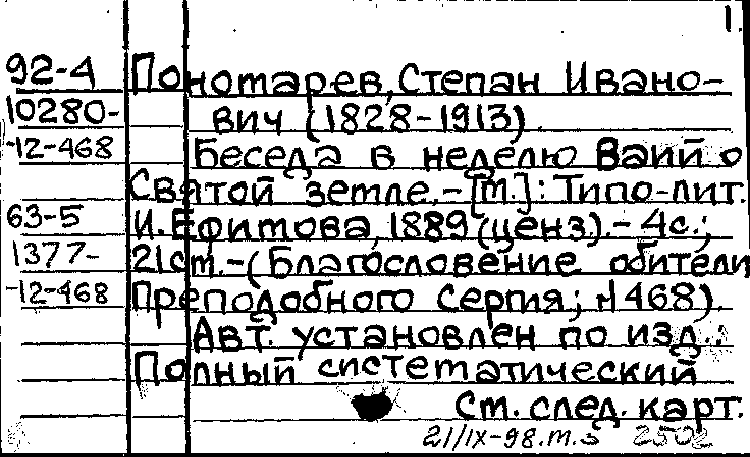 1.
92-4 Пономарев, Степан Ивано-
10280- вич (1828-1913).
-12-468 Беседа в неделю Ваий о
Святой земле.-[М.]: Типо-лит.
63-5 И. Ефимова, 1889 (ценз).- 4с.;
1377- 21см.-(Благословение обители
-12-468 Преподобного Сергия; №468).
Авт. установлен по изд.:
Полный систематический
См. след. карт.
21/IX-98.m.s 2502